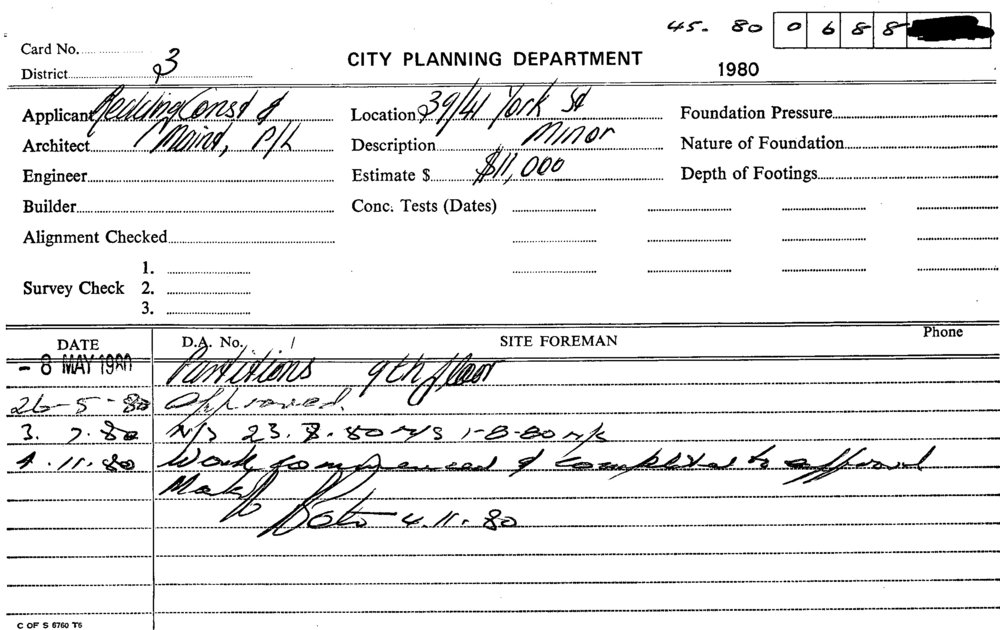 45. 80 0 6 8 8
Card No.
CITY PLANNING DEPARTMENT
District 3
1980
Applicant Redding Const &
Location 39/41 York St
Foundation Pressure
Architect Maint, P/L
Description Minor
Nature of Foundation
Engineer
Estimate $ $11,000
Depth of Footings
Builder
Conc. Tests (Dates)
Alignment Checked
1.
Survey Check 2.
3.
DATE D.A. No. SITE FOREMAN Phone
- 8 MAY 1980 Partitions 9th floor
26-5-80 Approved.
3. 7. 80 N/S 23. 7. 80 N/S 1-8-80 N/S
4. 11. 80 Work commenced & completed to approval
4. 11. 80
C OF S 6760 T6